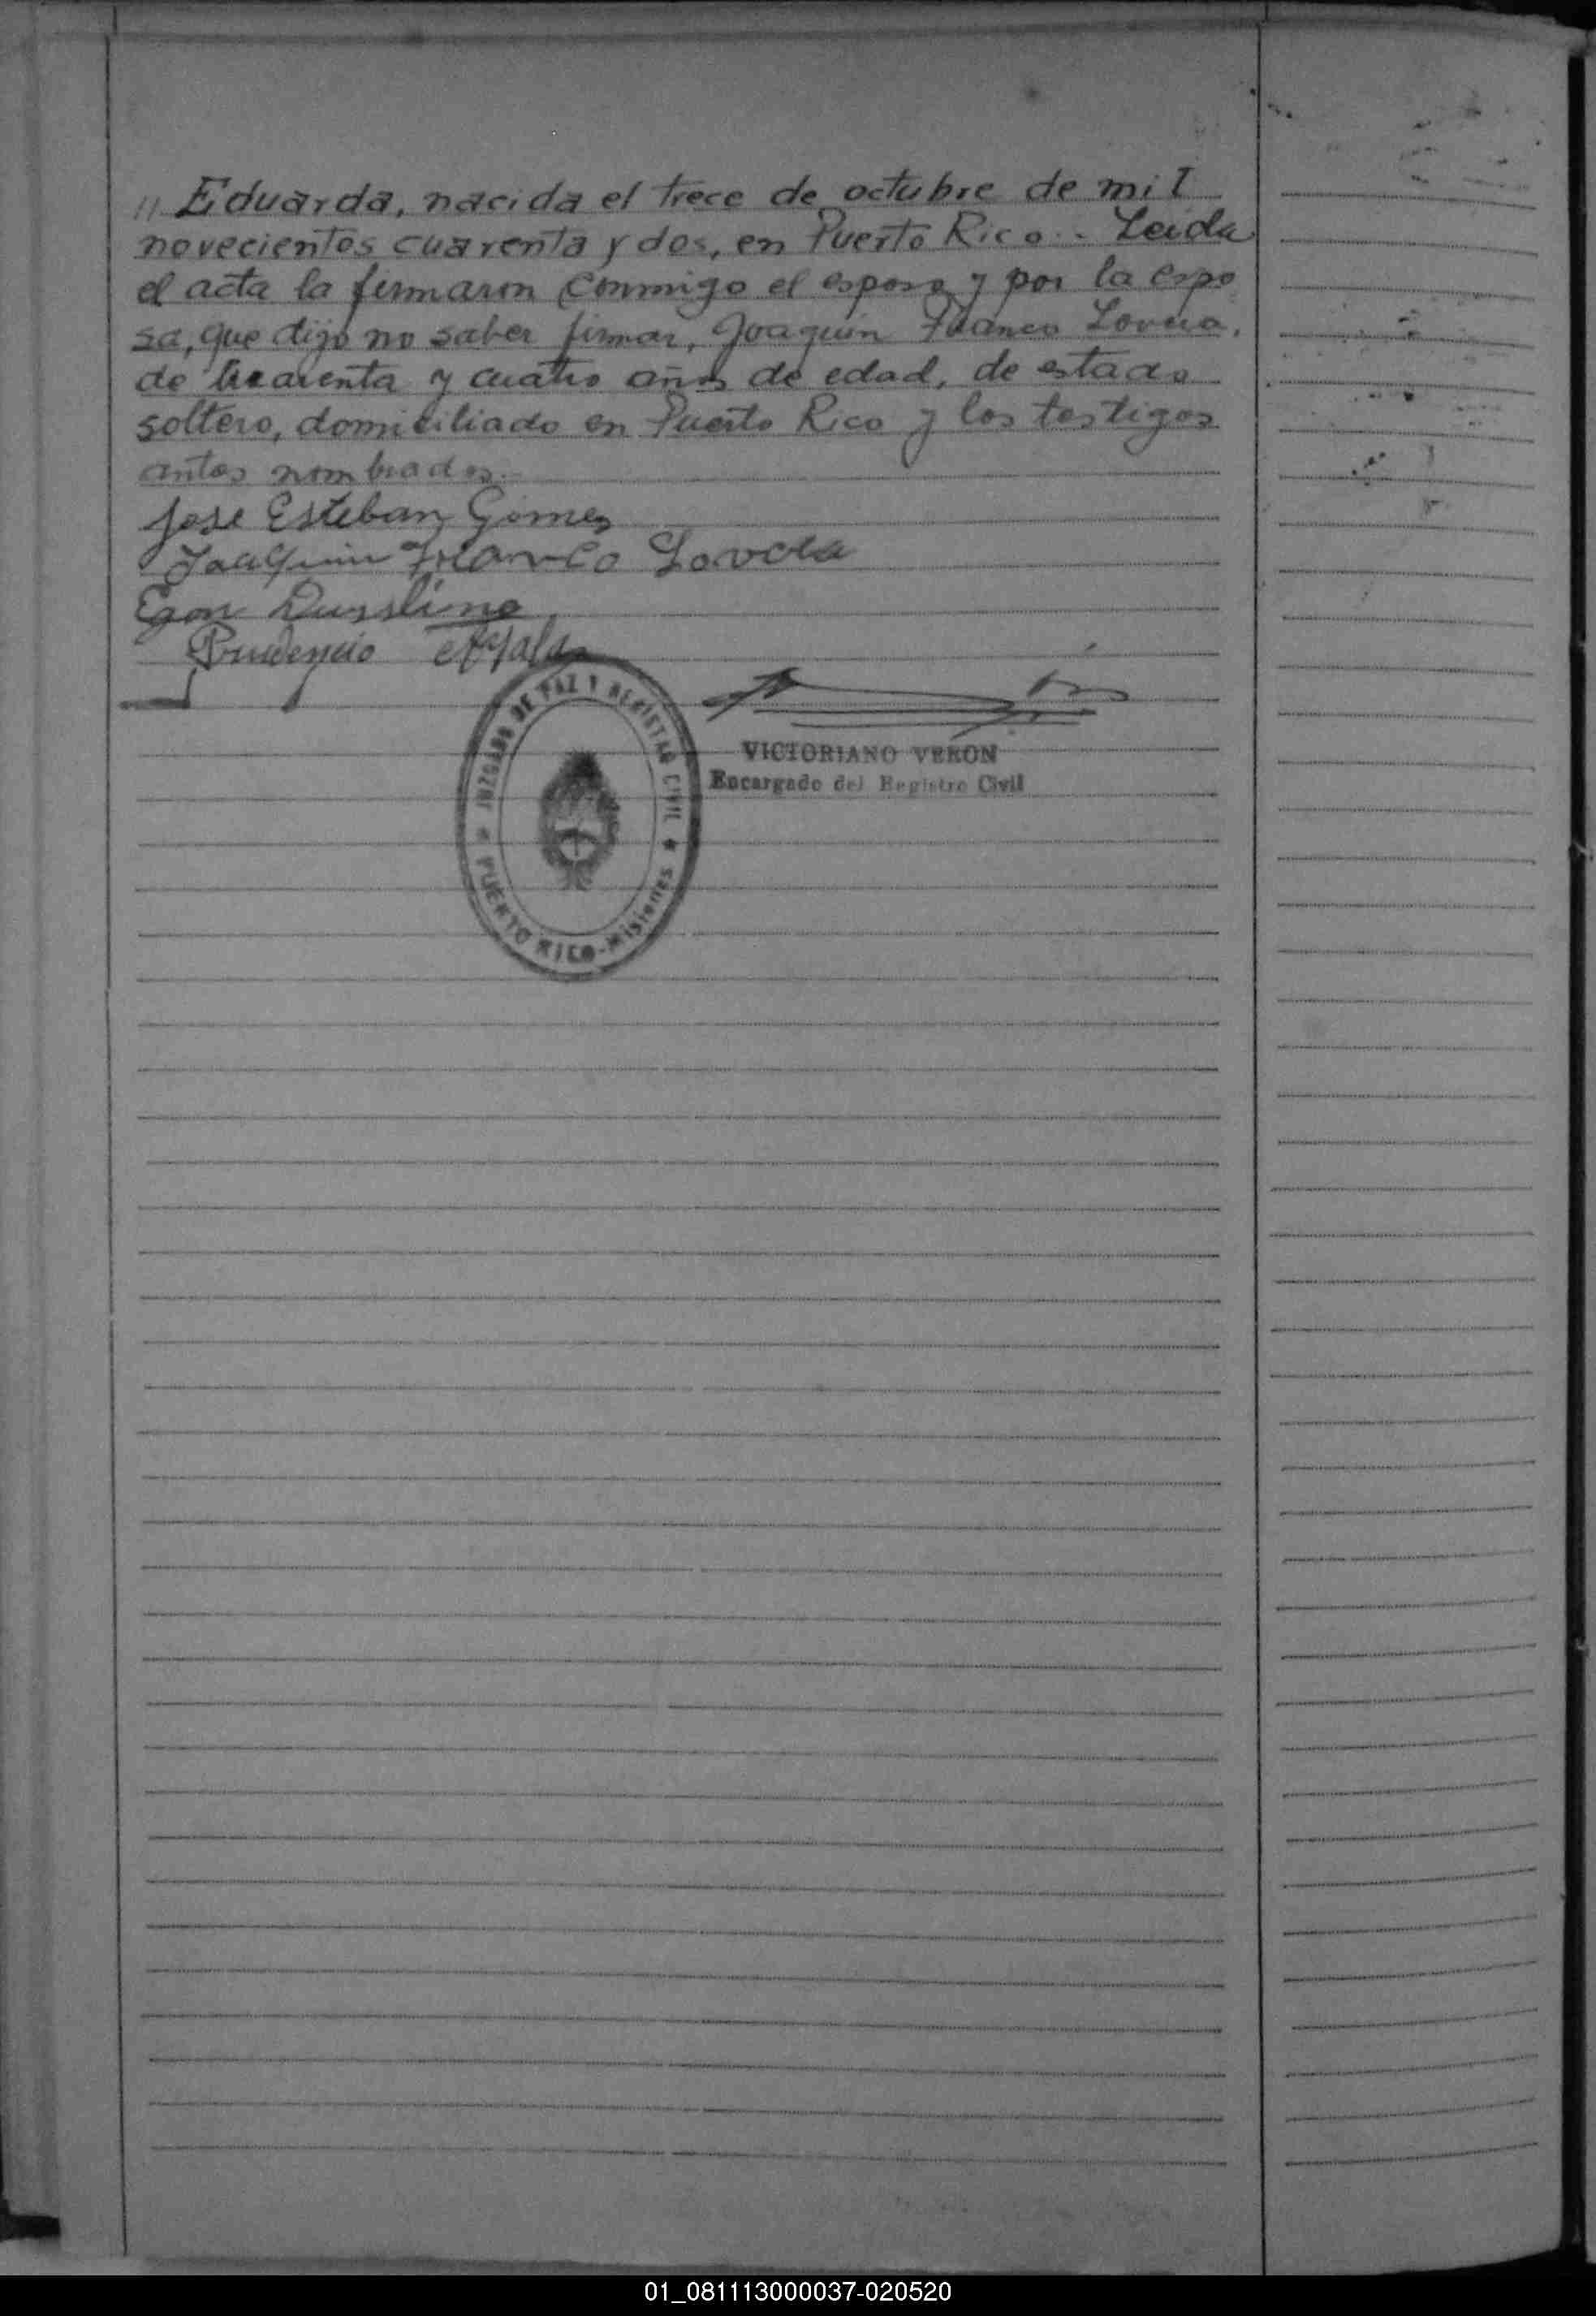 " Eduarda, nacida el trece de octubre de mil
novecientos cuarenta y dos, en Puerto Rico.- Leida
el acta la firmaron conmigo el esposo y por la espo
sa, que dijo no saber firmar, Joaquin Franco Lovera,
de cuarenta y cuatro años de edad, de estado
soltero, domiciliado en Puerto Rico y los testigos
antes nombrados.-
Jose Esteban Gomez
Joaquin Franco Lovera
Egon
Prudencio Ayala
JUZGADO DE PAZ Y REGISTRO CIVIL
PUERTO RICO-Misiones
VICTORIANO VERON
Encargado del Registro Civil
01_081113000037-020520